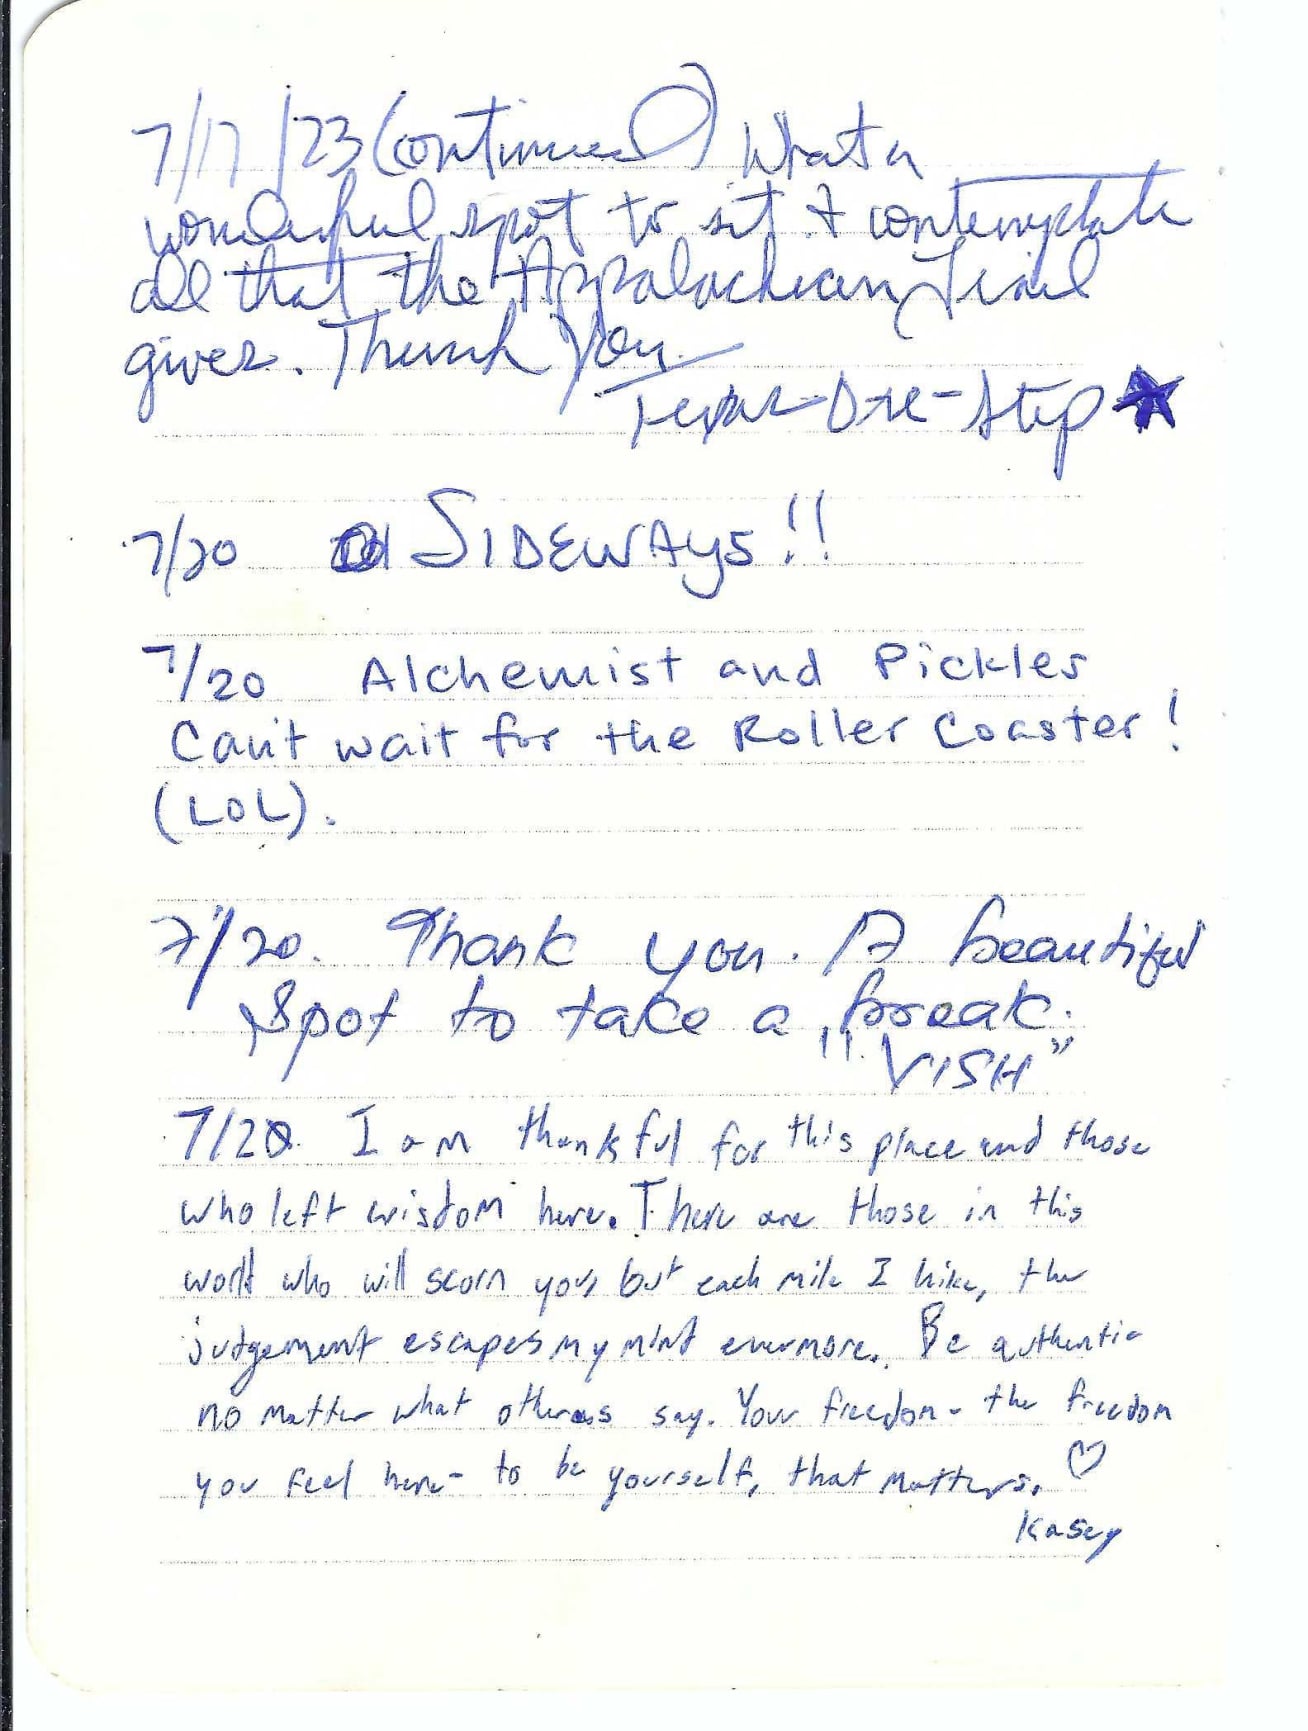 7/17/23 (continued) What a
wonderful spot to sit & contemplate
all that the Appalachian Trail
gives. Thank You
Texas One-Step
7/20 SIDEWAYS!!
7/20 Alchemist and Pickles
Can't wait for the Roller Coaster!
(LOL).
7/20. Thank you. A beautiful
spot to take a break.
"VISH"
7/20 I am thankful for this place and those
who left wisdom here. There are those in this
world who will scorn you, but each mile I hike, the
judgement escapes my mind evermore. Be authentic
no matter what others say. Your freedom - the freedom
you feel here - to be yourself, that matters. ♡
Kasey